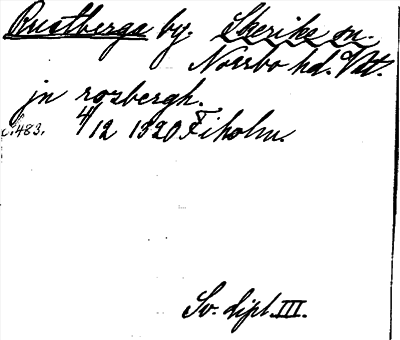 Rustberga by. Skerike sn.
Norrbo hd. Vstm.
jn rozbergh.
s. 483. 4/12 1320 Fiholm.
Sv. dipl. III.